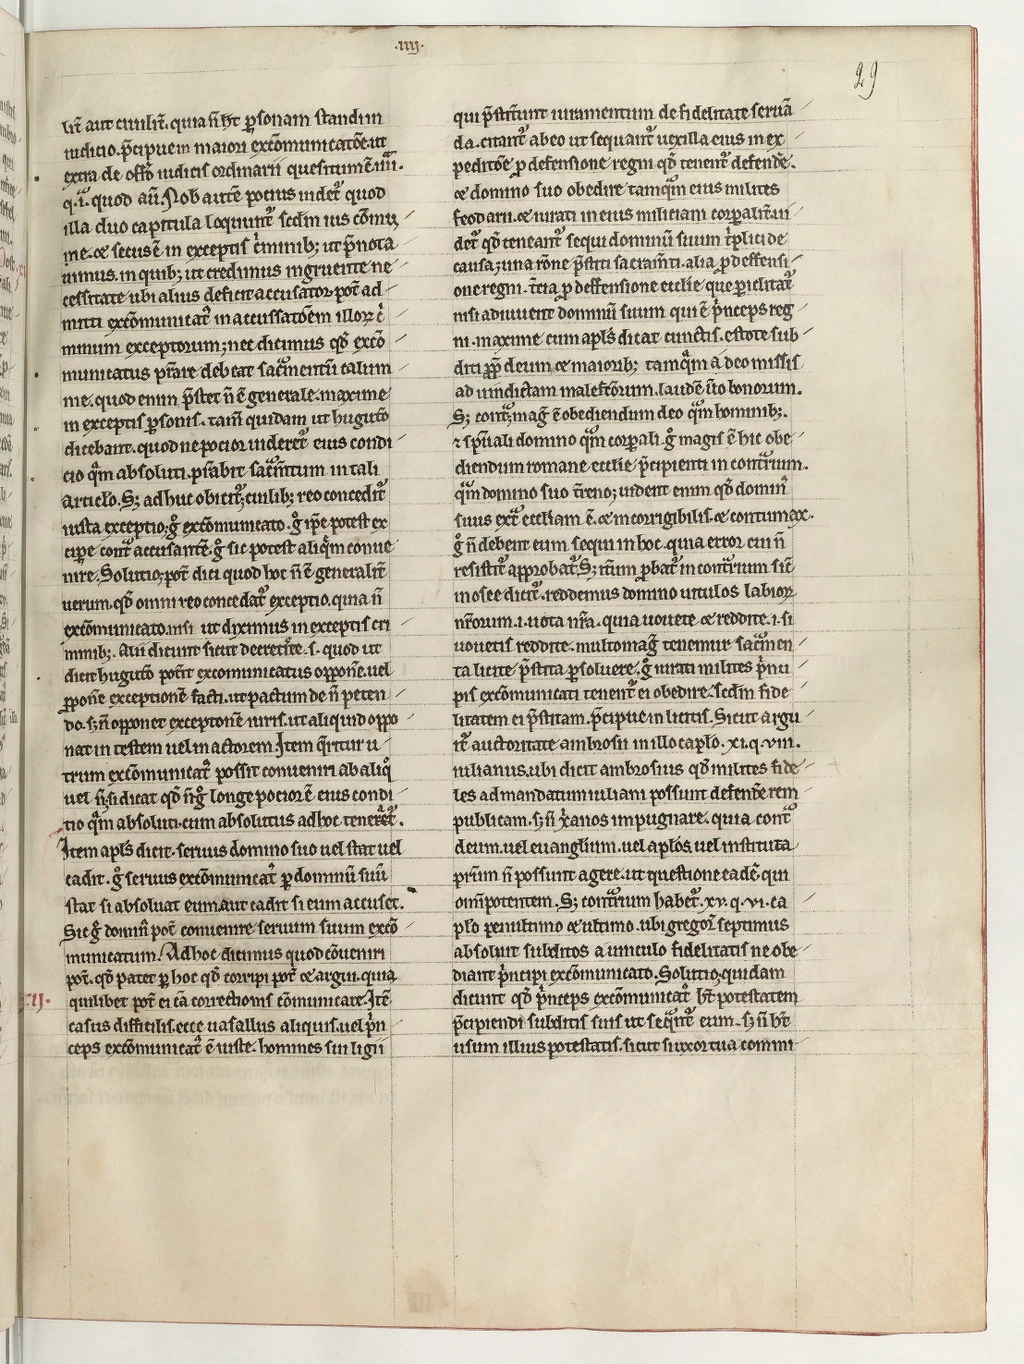 .iiij.
29
lit̄ aut ciuilit̄. quia n̄ hт̄ ꝑsonam standi in
iudicio. p̄cipue in maiori excōmunicatōe. ut
extra de offō iudicis ordinarii quesitum ē. iiii.
q. i. quod aū. Nob̄ autē potius uidet᷑ quod
illa duo capitula loqūnt᷑ sc̄dm ius cōmu
ne. ⁊ secus ē in exceptis c̄minib; ut p̄nota
uimus. in quib; ut credimus ingruente ne
cessitate ubi alius deficit accusator pot̄ ad
mitti excōmunicat᷑ in accussatōem illoꝝ c̄
minum exceptorum; nec dicimus qd̄ excō
municatus p̄stare debeat sac̄mentū calum
nie. quod enim p̄stet n̄ ē generale. maxime
in exceptis ꝑsonis. tam̄ quidam ut huguc̄o
dicebant. quod ne pocior uideret᷑ eius condi
cio qͣm absoluti. p̄stabit sac̄mtum in tali
articlo. S; adhuc obicit᷑; cuilib; reo concedit᷑
iusta exceptio; g̊ excōmunicato. g̊ ip̄e potest ex
cipe cont̄ accusantē. g̊ sic potest aliq̄m conue
nire. Solutio; pot̄ dici quod hoc n̄ ē generalit̄
uerum. qd̄ omni reo concedat᷑ exceptio. quia n̄
excōmunicato. nisi ut diximus in exceptis cri
minib;. Alii dicunt sicut decretīte. s. quod ut
dicit huguc̄o potit̄ excomunicatus oppone. uel
ꝓpone exceptionē facti. ut pactum de n̄ peten
do. s; n̄ opponet exceptonē iuris. ut aliquid oppo
nat in testem uel in actorem. Item q̄ritur u
trum excōmunicat᷑ possit conueniri ab aliq̊
uel n̄. si dicat qd̄ n̄. g̊ longe pociorē eius condi
tio qͣm absoluti. cum absolutus adhoc teneret᷑.
Item apl̄s dicit. seruus domino suo uel stat uel
cadit. g̊ seruus excōmunicat᷑ ꝑ dominū suū
stat si absoluat eum. aut cadit si eum accuset.
Sic g̊ domin̄ pot̄ conuenire seruum suum excō
municatum. Adhoc dicimus quod cōueniri
pot̄. qd̄ patet ꝑ hoc qd̄ corripi pot̄ ⁊ argui. quia
quilibet pot̄ ei cā correctionis cōmunicare. Itē
casus difficilis. ecce uasallus aliquis. uel p̄n
ceps excōmunicat᷑ ē iuste. homines sui ligii
qui p̄stit̄unt iuramentum de fidelitate serua
da. citant᷑ ab eo ut sequant᷑ uexilla eius in ex
peditōe ꝓ defensione regni qd̄ tenent᷑ defende.
⁊ domino suo obedire tamqͣm eius milites
feodarii. ⁊ iurati in eius miliciam corꝑalit̄. ui
det᷑ qd̄ teneant᷑ sequi dominū suum t̄plici de
causa; una rōne p̄stiti sacram̄ti. alia ꝓ deffensi
one regni. t̄cia ꝓ deffensione ecclie que ꝑiclitat᷑
nisi adiuuent dominū suum qui ē p̄nceps reg
ni. maxime cum apl̄s dicat cunctis. estote sub
diti ꝓpt̄ deum ⁊ maiorib; tamqͣm a deo missis
ad uindictam malefc̄orum. laudē ūo bonorum.
S; cont᷑; mag̊ ē obediendum deo qͣm hominib;.
⁊ sp̄uali domino qͣm corꝑali. g̊ magis ē hic obe
diendum romane ecclie p̄cipienti in cont̄rium.
qͣm domino suo t̄reno; uident enim qd̄ domin̄
suus ext̄ ecc̄liam ē. ⁊ incorrigibilis. ⁊ contumax.
g̊ n̄ debent eum sequi in hoc. quia error cui n̄
resistit᷑ approbat᷑. S; it̄um ꝓbat᷑ in cont̄rium sic̄
in osee dicit᷑. reddemus domino uitulos labioꝝ
nr̄orum. i. uota nr̄a. quia uouete ⁊ reddite. i. si
uouetis reddite. multo mag̊ tenemur sac̄men
ta licite p̄stita ꝑsoluere. g̊ iurati milites p̄nci
pis excōmunicati tenent᷑ ei obedire. sc̄dm fide
litatem ei p̄stitam. p̄cipue in licitis. Sicut argu
it᷑ auctoritate ambrosii in illo caplo. xi. q. viii.
iulianus. ubi dicit ambrosius qd̄ milites fide
les ad mandatum iuliani possunt defende rem
publicam. s; n̄ x̄anos impugnare. quia cont̄
deum. uel euanglium. uel aplos. uel instituta
pr̄um n̄ possunt agere. ut questione eadē. qui
omīpotentem. S; cont̄rium habet᷑. xv. q. vi. ca
plo penultimo ⁊ ultimo. ubi gregor᷑ septimus
absoluit subditos a uinculo fidelitatis ne obe
diant p̄ncipi excōmunicato. Solutio; quidam
dicunt qd̄ p̄nceps excōmunicat᷑ ht̄ potestatem
p̄cipiendi subditis suis ut seq̄nt᷑ eum. s; n̄ ht̄
usum illius potestatis. sicut si uxor tua commi